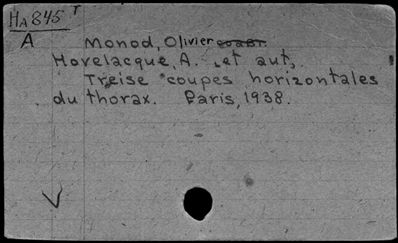 HA845 T
A Monod, Olivier
Hovelacque, A. et aut,
Treise coupes horizontales
du thorax. Paris, 1938.